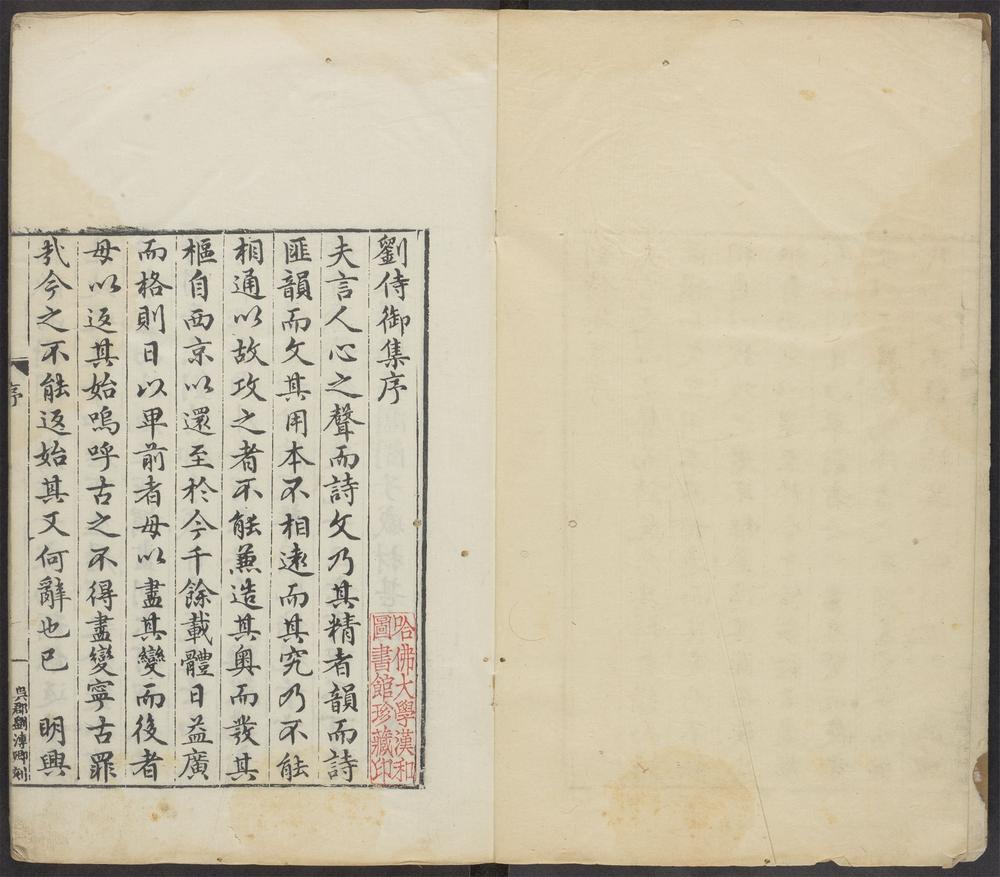 劉侍御集序
夫言人心之聲而詩文乃其精者韻而詩
匪韻而文其用本不相遠而其究乃不能
相通以故攻之者不能兼造其奥而發其
樞自西京以還至於今千餘載體日益廣
而格則日以卑前者毋以盡其變而後者
毋以返其始嗚呼古之不得盡變寧古罪
㢤今之不能返始其又何辭也已 明興
序
一
吳郡劉溥卿刻
哈佛大學漢和
圖書館珍藏印